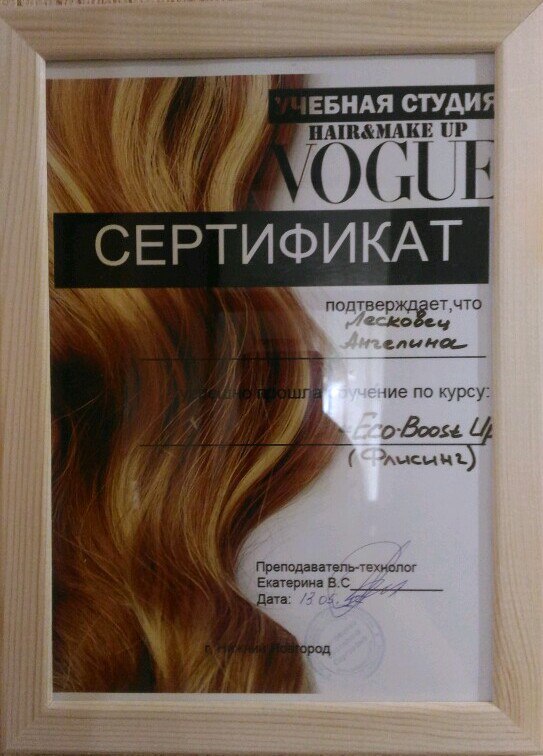 УЧЕБНАЯ СТУДИЯ
HAIR&MAKE UP
VOGUE
СЕРТИФИКАТ
подтверждает,что
Лесковец
Ангелина
прошла обучение по курсу:
-Eco-Boost Up
(Флисинг)
Преподаватель-технолог
Екатерина В.С
Дата: 13.05.
г. Нижний Новгород